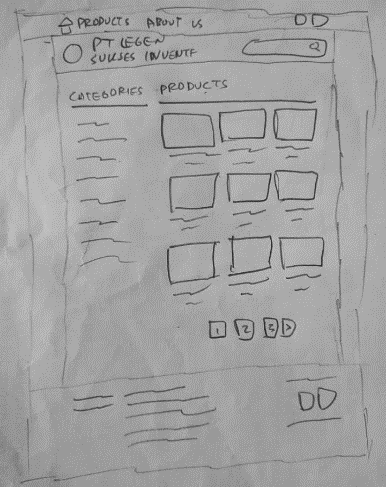 PRODUCTS ABOUT US
PT LEGEN
SUKSES INVENTE
CATEGORIES PRODUCTS
1 2 3 >